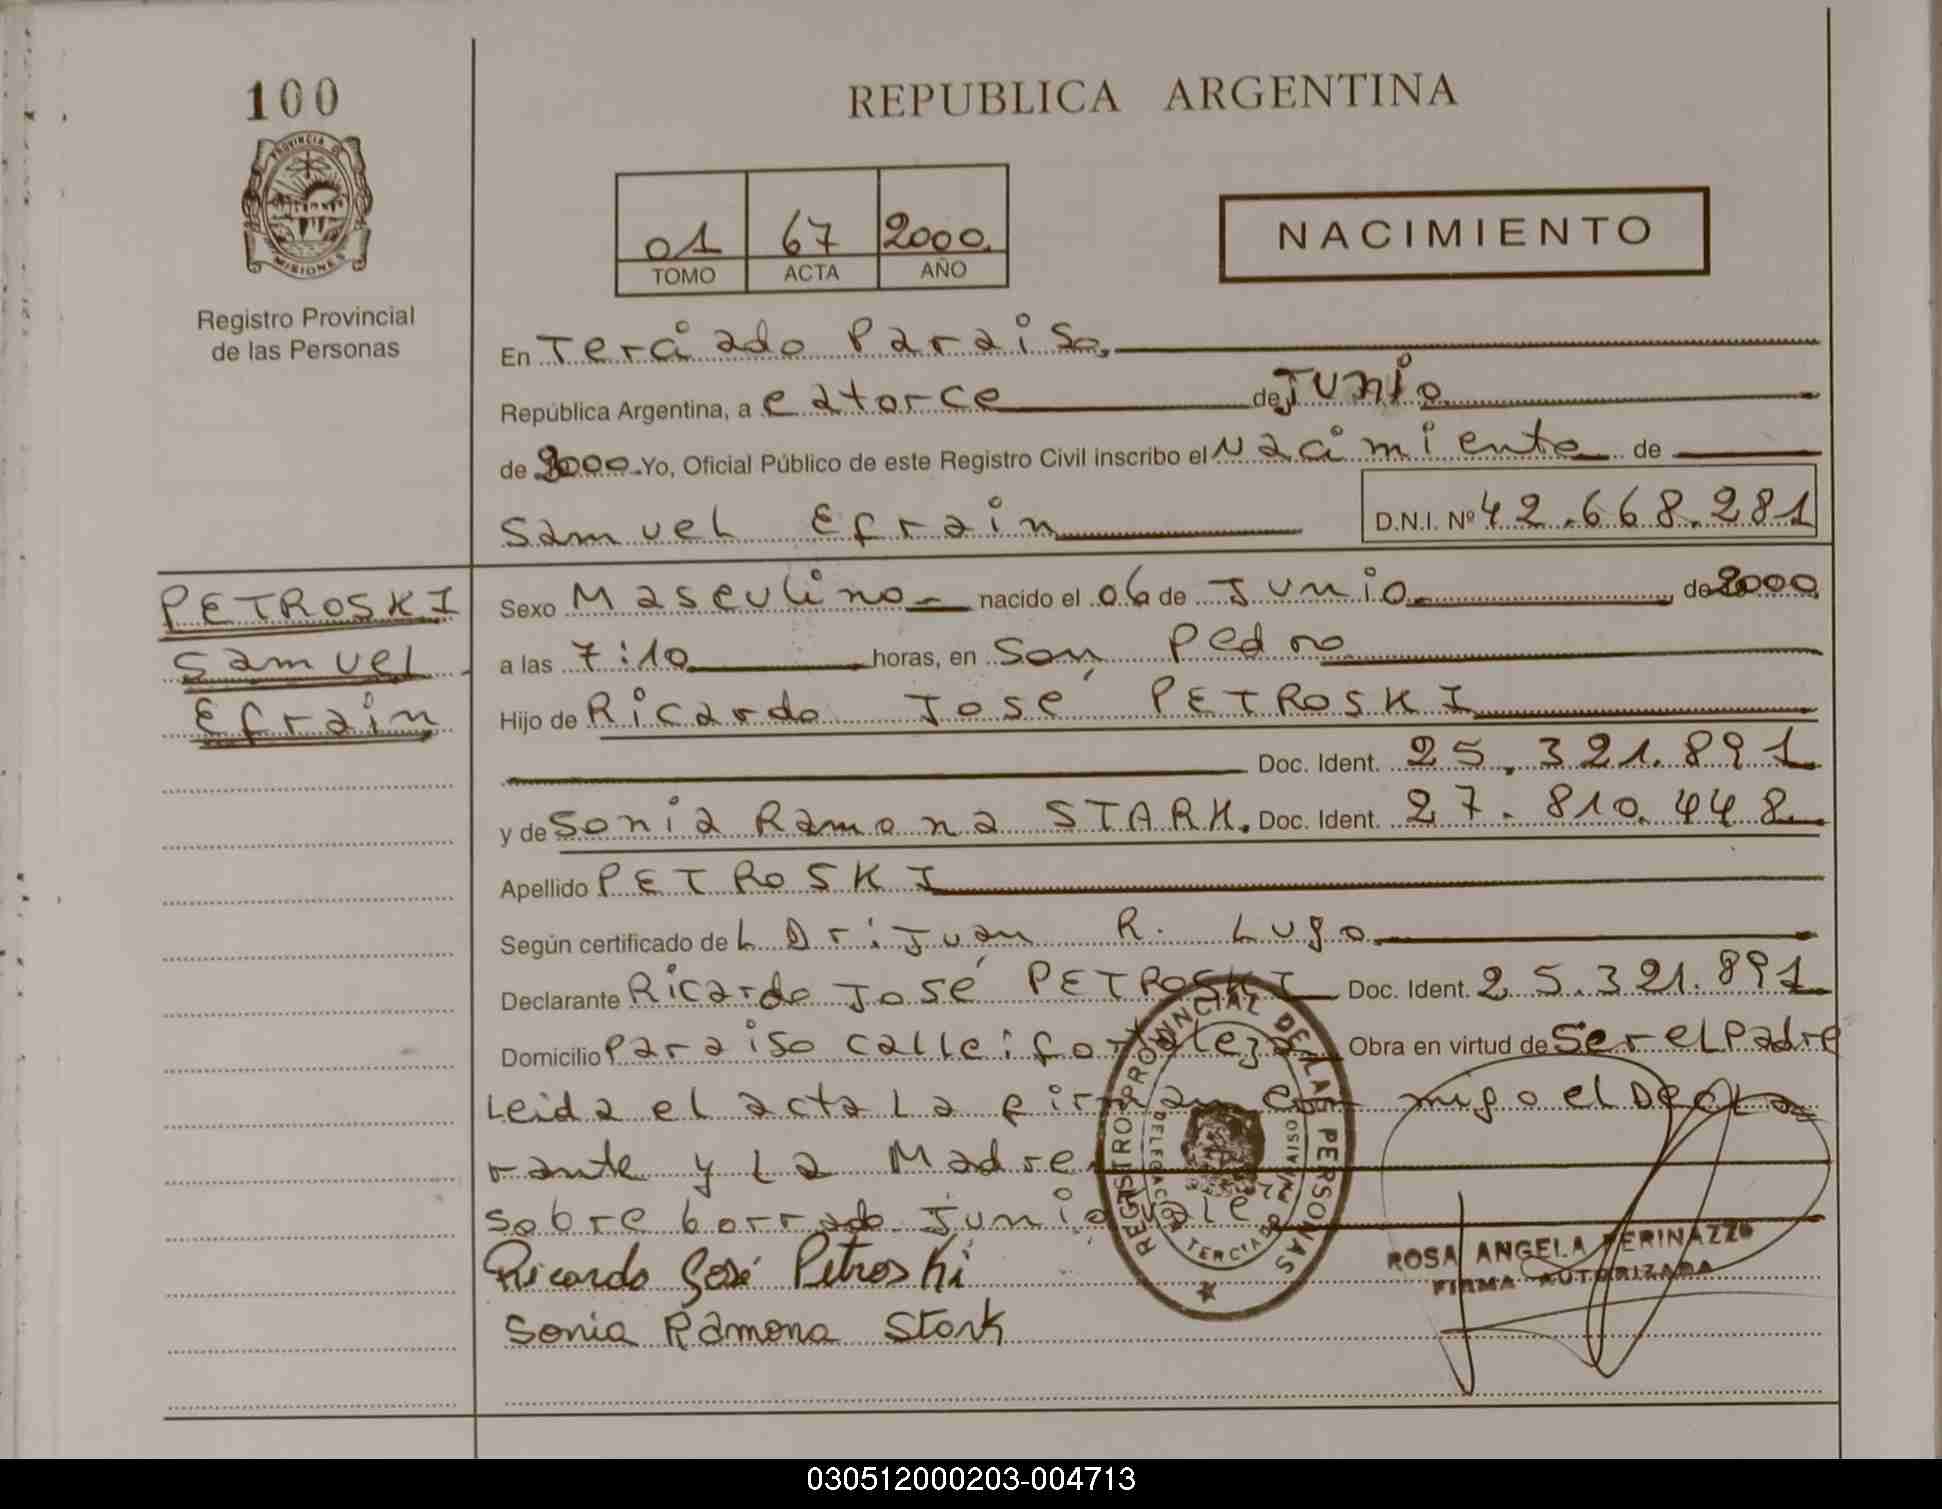 100
PROVINCIA DE
MISIONES
Registro Provincial
de las Personas
REPUBLICA ARGENTINA
01 67 2000
TOMO ACTA AÑO
NACIMIENTO
En Terciado Paraiso,
República Argentina, a catorce de Junio
de 2000 Yo, Oficial Público de este Registro Civil inscribo el Nacimiento de
Samuel Efrain D.N.I. Nº 42.668.281
PETROSKI
Samuel
Efrain
Sexo Masculino nacido el 06 de Junio de 2000
a las 7:10 horas, en San Pedro
Hijo de Ricardo José PETROSKI
Doc. Ident. 25.321.891
y de Sonia Ramona STARK. Doc. Ident. 27.810.448
Apellido PETROSKI
Según certificado de L Dr: Juan R. Lugo
Declarante Ricardo José PETROSKI Doc. Ident. 25.321.891
Domicilio Paraiso calle: fortaleza Obra en virtud de Ser el Padre
Leida el acta La firman con migo el Decla
rante y La Madre
Sobre borrado Junio Vale
Ricardo José Petroski
Sonia Ramona Stark
REGISTRO PROVINCIAL DE LAS PERSONAS
DELEGACION TERCIADO PARAISO
ROSA ANGELA PERINAZZO
FIRMA AUTORIZADA
030512000203-004713